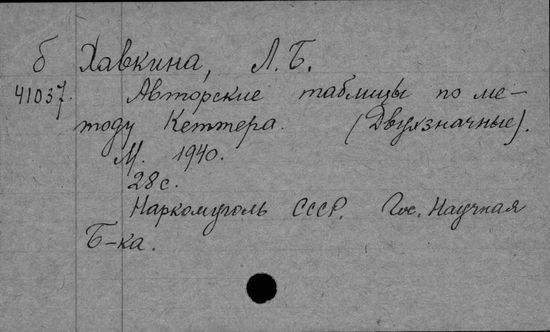 б Хавкина, Л.Б.
41037. Авторские таблицы по ме-
тоду Кеттера. (Двухзначные).
М. 1940.
28 с.
Наркомуголь СССР. Гос. Научная
Б-ка.